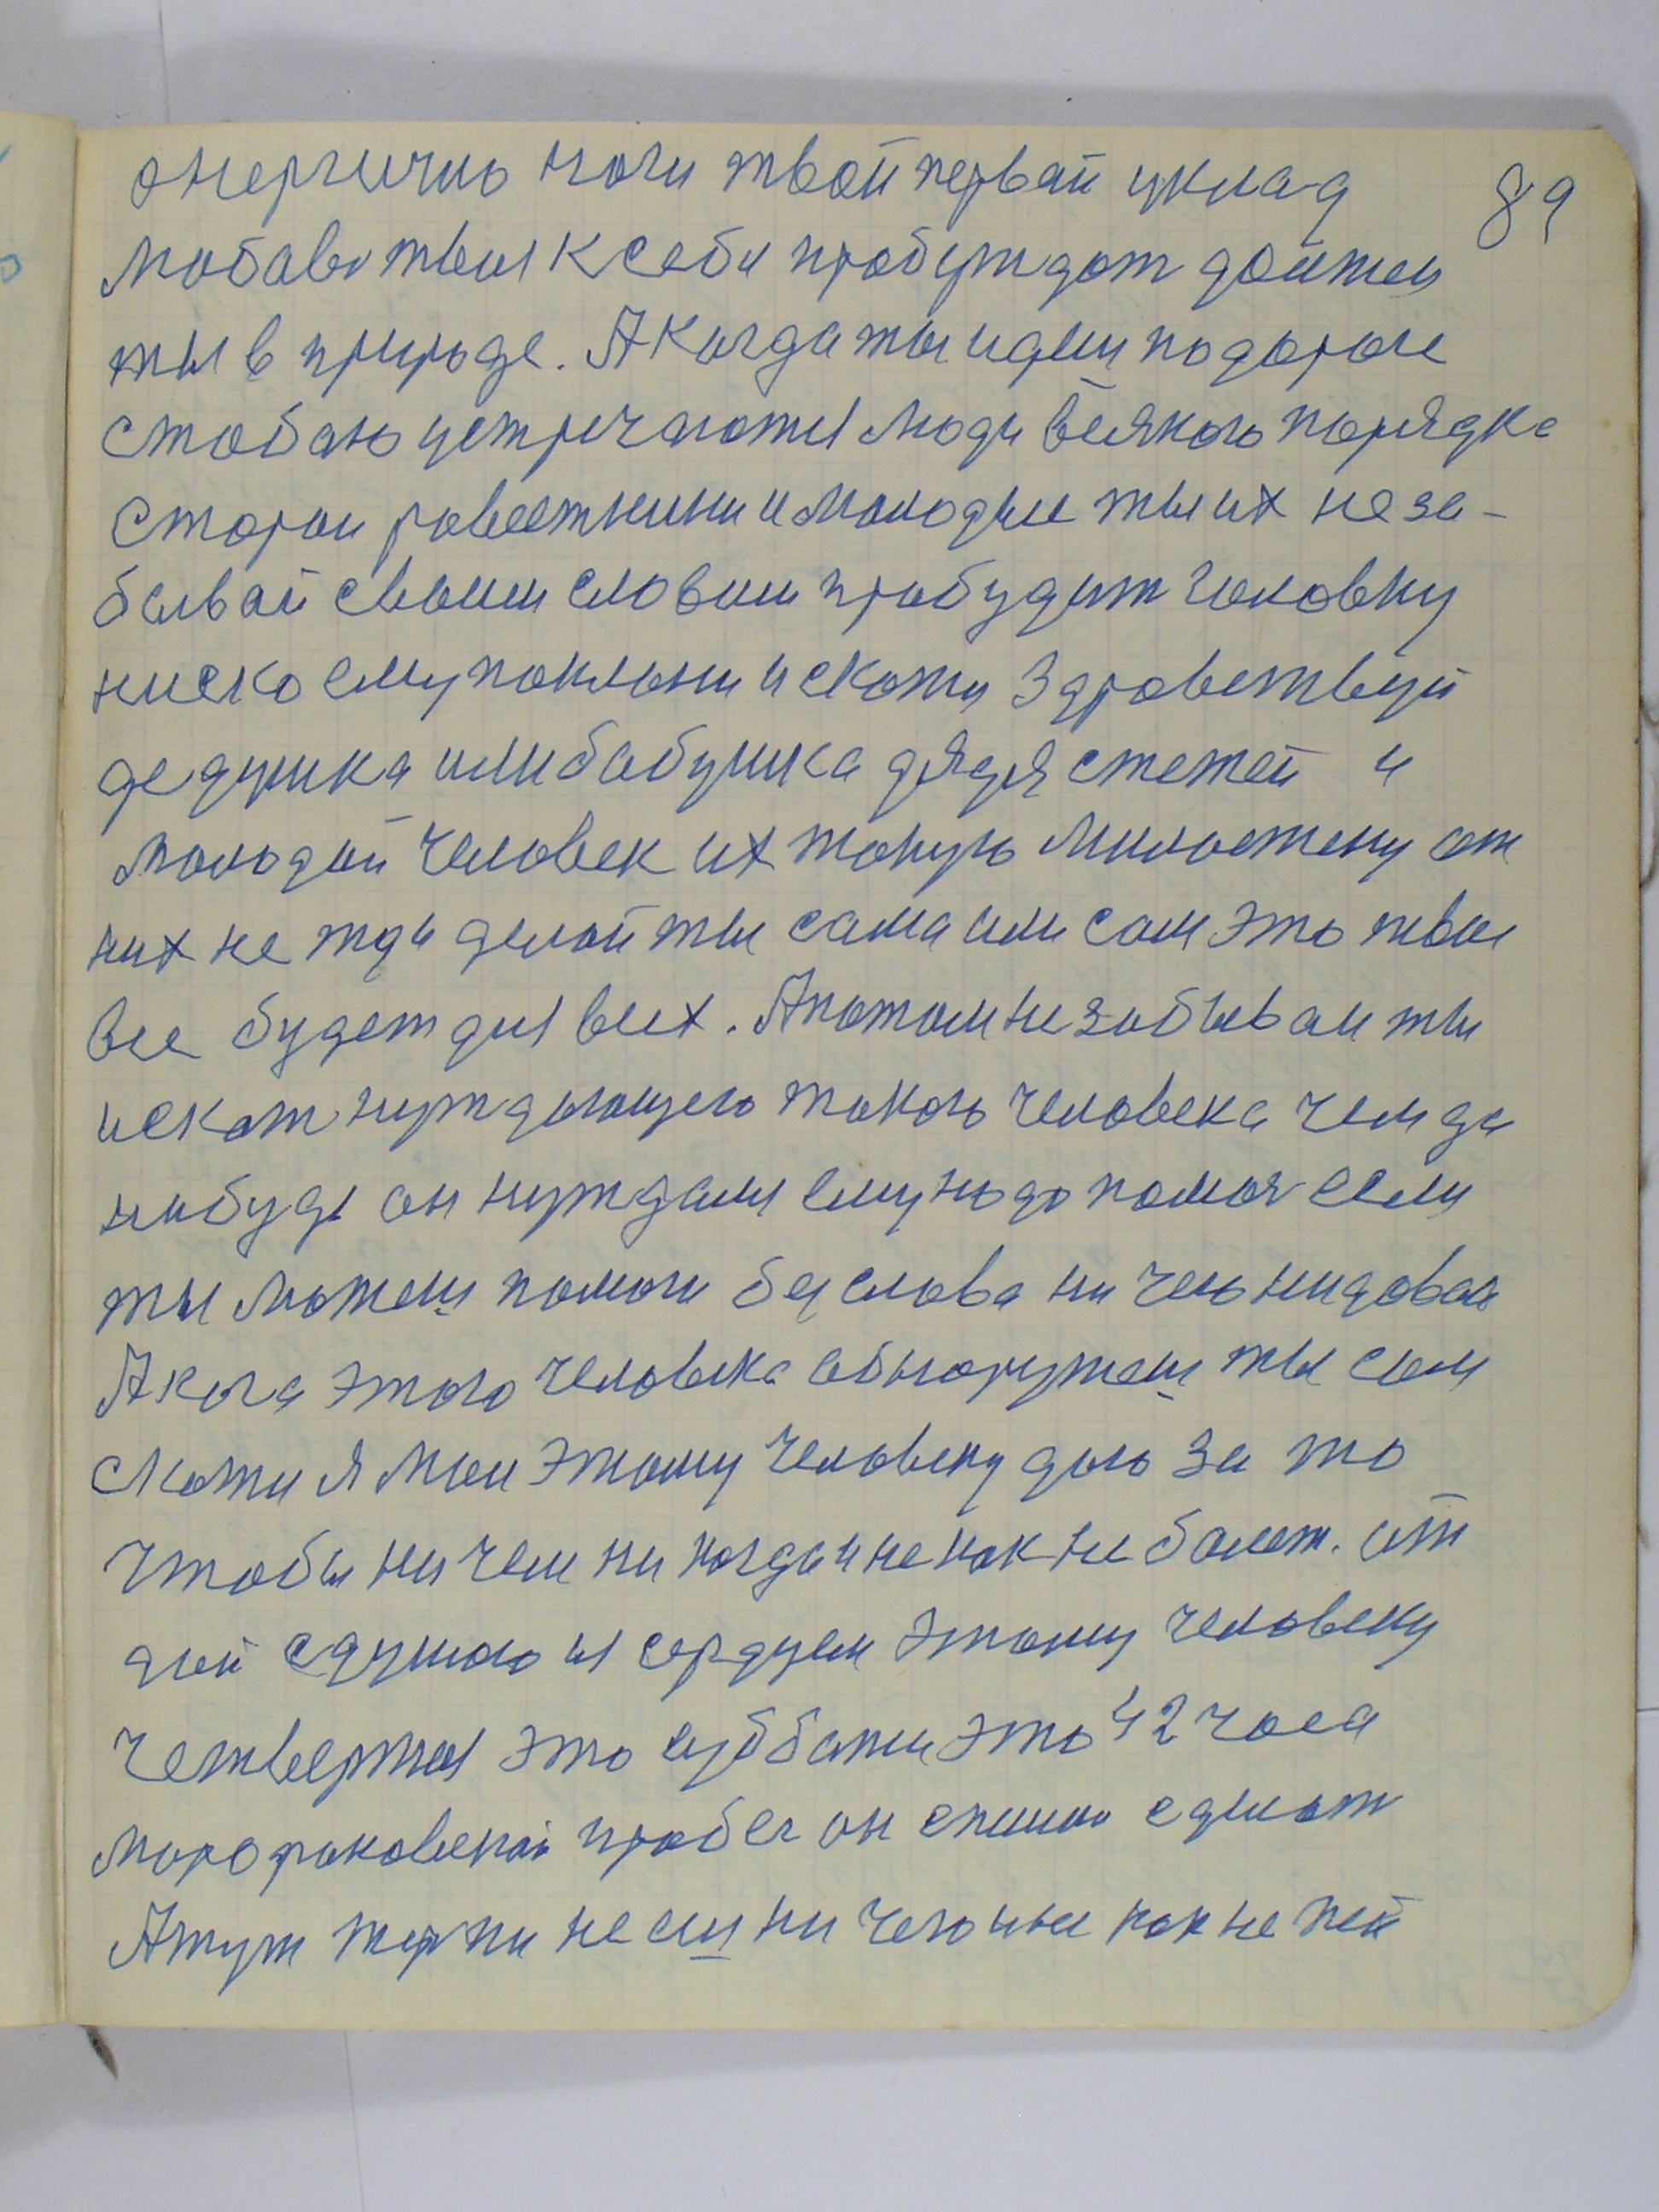 энергично ноги твой первай уклад 89
любов твоя к себи пробуждат должен
ты в природе. А когда ты идеш по дороге
стобаю устречаются люди всякого порядка
старои ровестники и молодые ты их не за-
бывай своим словом прабудит человеку
ниско ему поклони и скажи Здровствуй
дедушка или бабушка дядя стетей и
молодой человек их такую милостену от
них не жди делай ты сама или сам это твое
все будет для всех. А потом не забывай ты
искат нуждающего такого человека чем да
нибудь он нуждался ему надо помоч если
ты можеш помочи без слова ни чего
А кога этого человека обнаружеш ты сам
скажи я мол этому человеку даю за то
чтобы ни чем ни когда и не как не балет. от
дай сдушою и сердцем этому человеку
Четвертая это суббота это 42 часа
пробег он
А тут терпи не еш ни чего и не как не пей